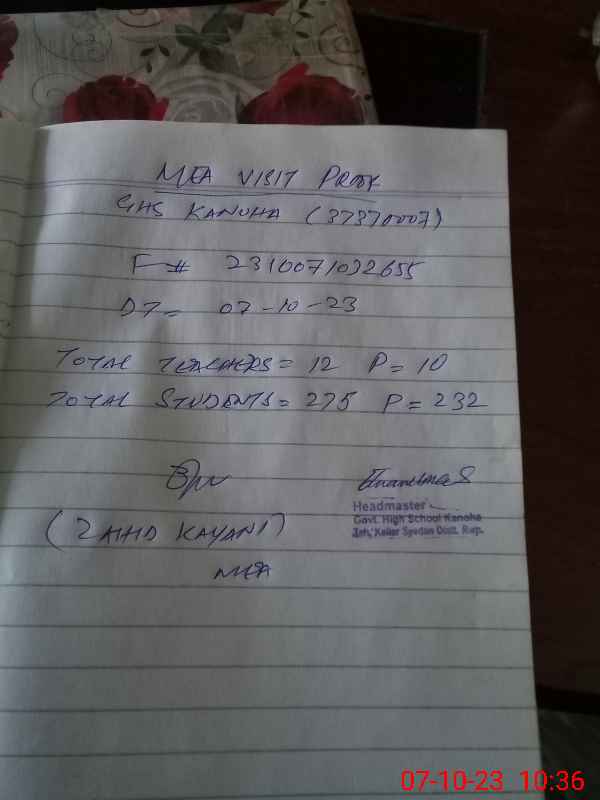 MEA VISIT PROOF
GHS KANOHA (37370007)
F# 2310071032655
DT= 07-10-23
TOTAL TEACHERS = 12 P = 10
TOTAL STUDENTS = 275 P = 232
Headmaster
Govt. High School Kanoha
Teh, Kallar Syedan Distt. Rwp.
(ZAHID KAYANI)
MEA
07-10-23 10:36